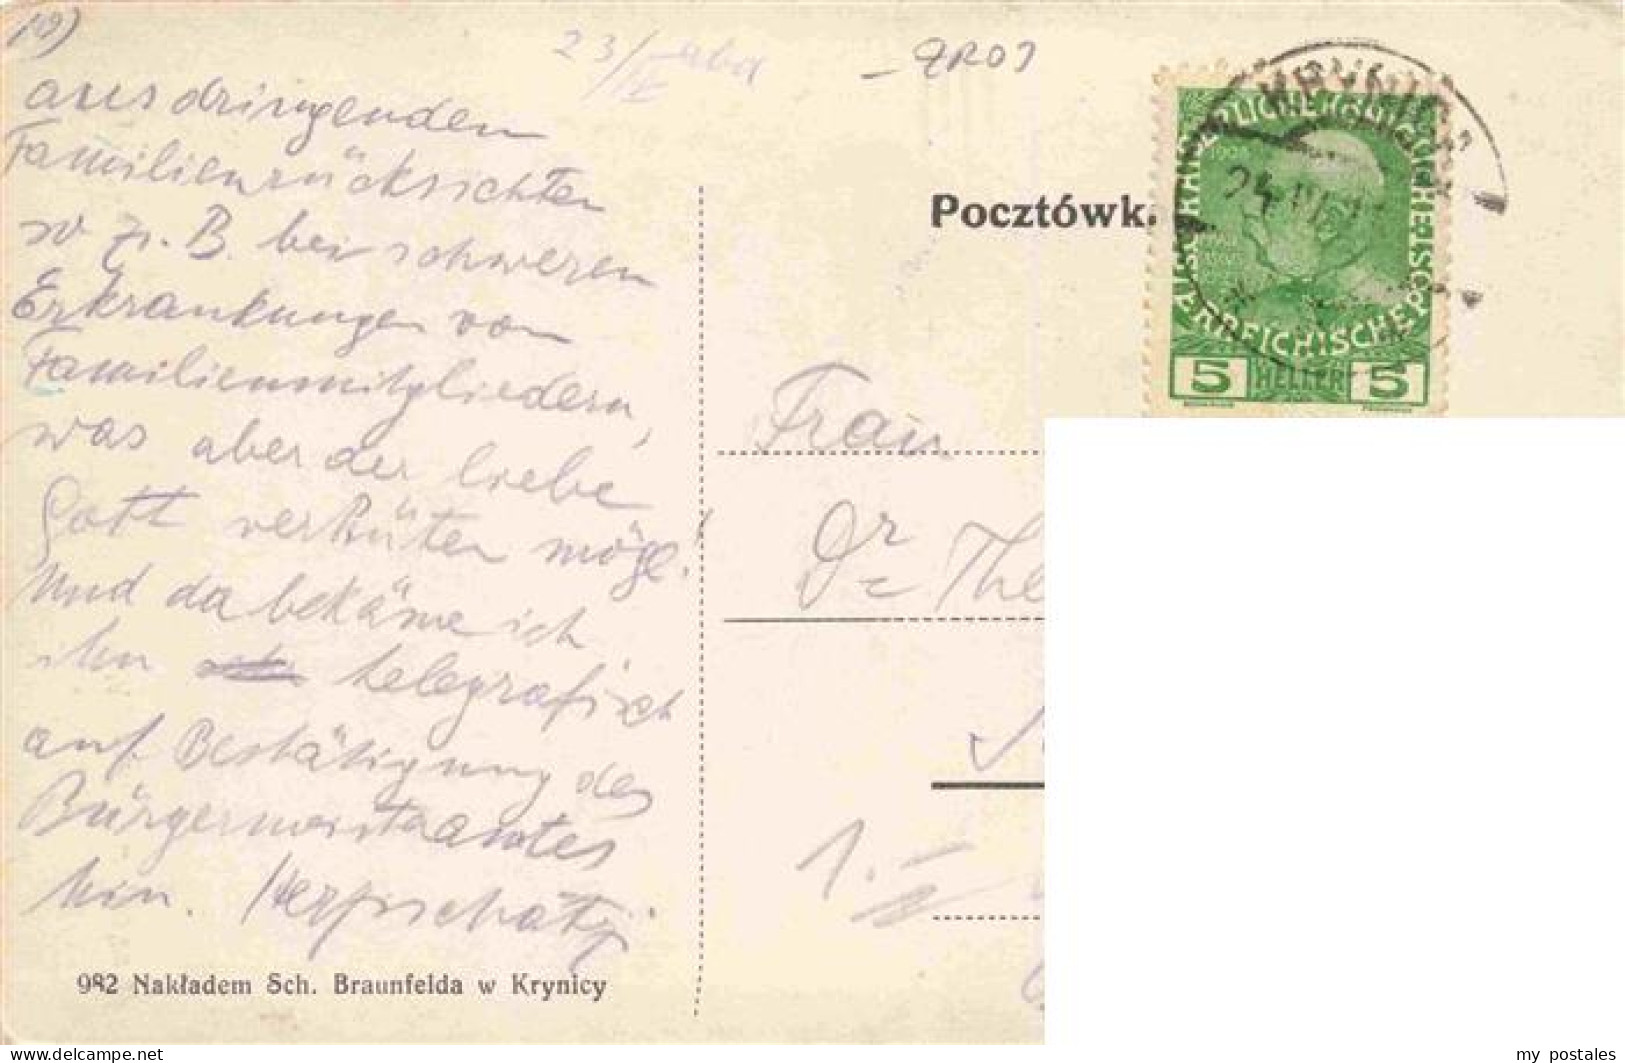 19)
23/II
aus dringenden
Familienrücksichten
so z. B. bei schweren
Erkrankungen von
Familienmitgliedern,
was aber der liebe
Gott verhüten möge!
Und da bekäme ich
ihn telegrafisch
auf Bestätigung des
Bürgermeisteramtes
hin.
982 Nakładem Sch. Braunfelda w Krynicy
Pocztówk
KRYNICA
24
KAIS. KÖNIGLICHE
ÖSTERREICHISCHE POST
5 HELLER 5
Frau
Dr The
1.
my postales